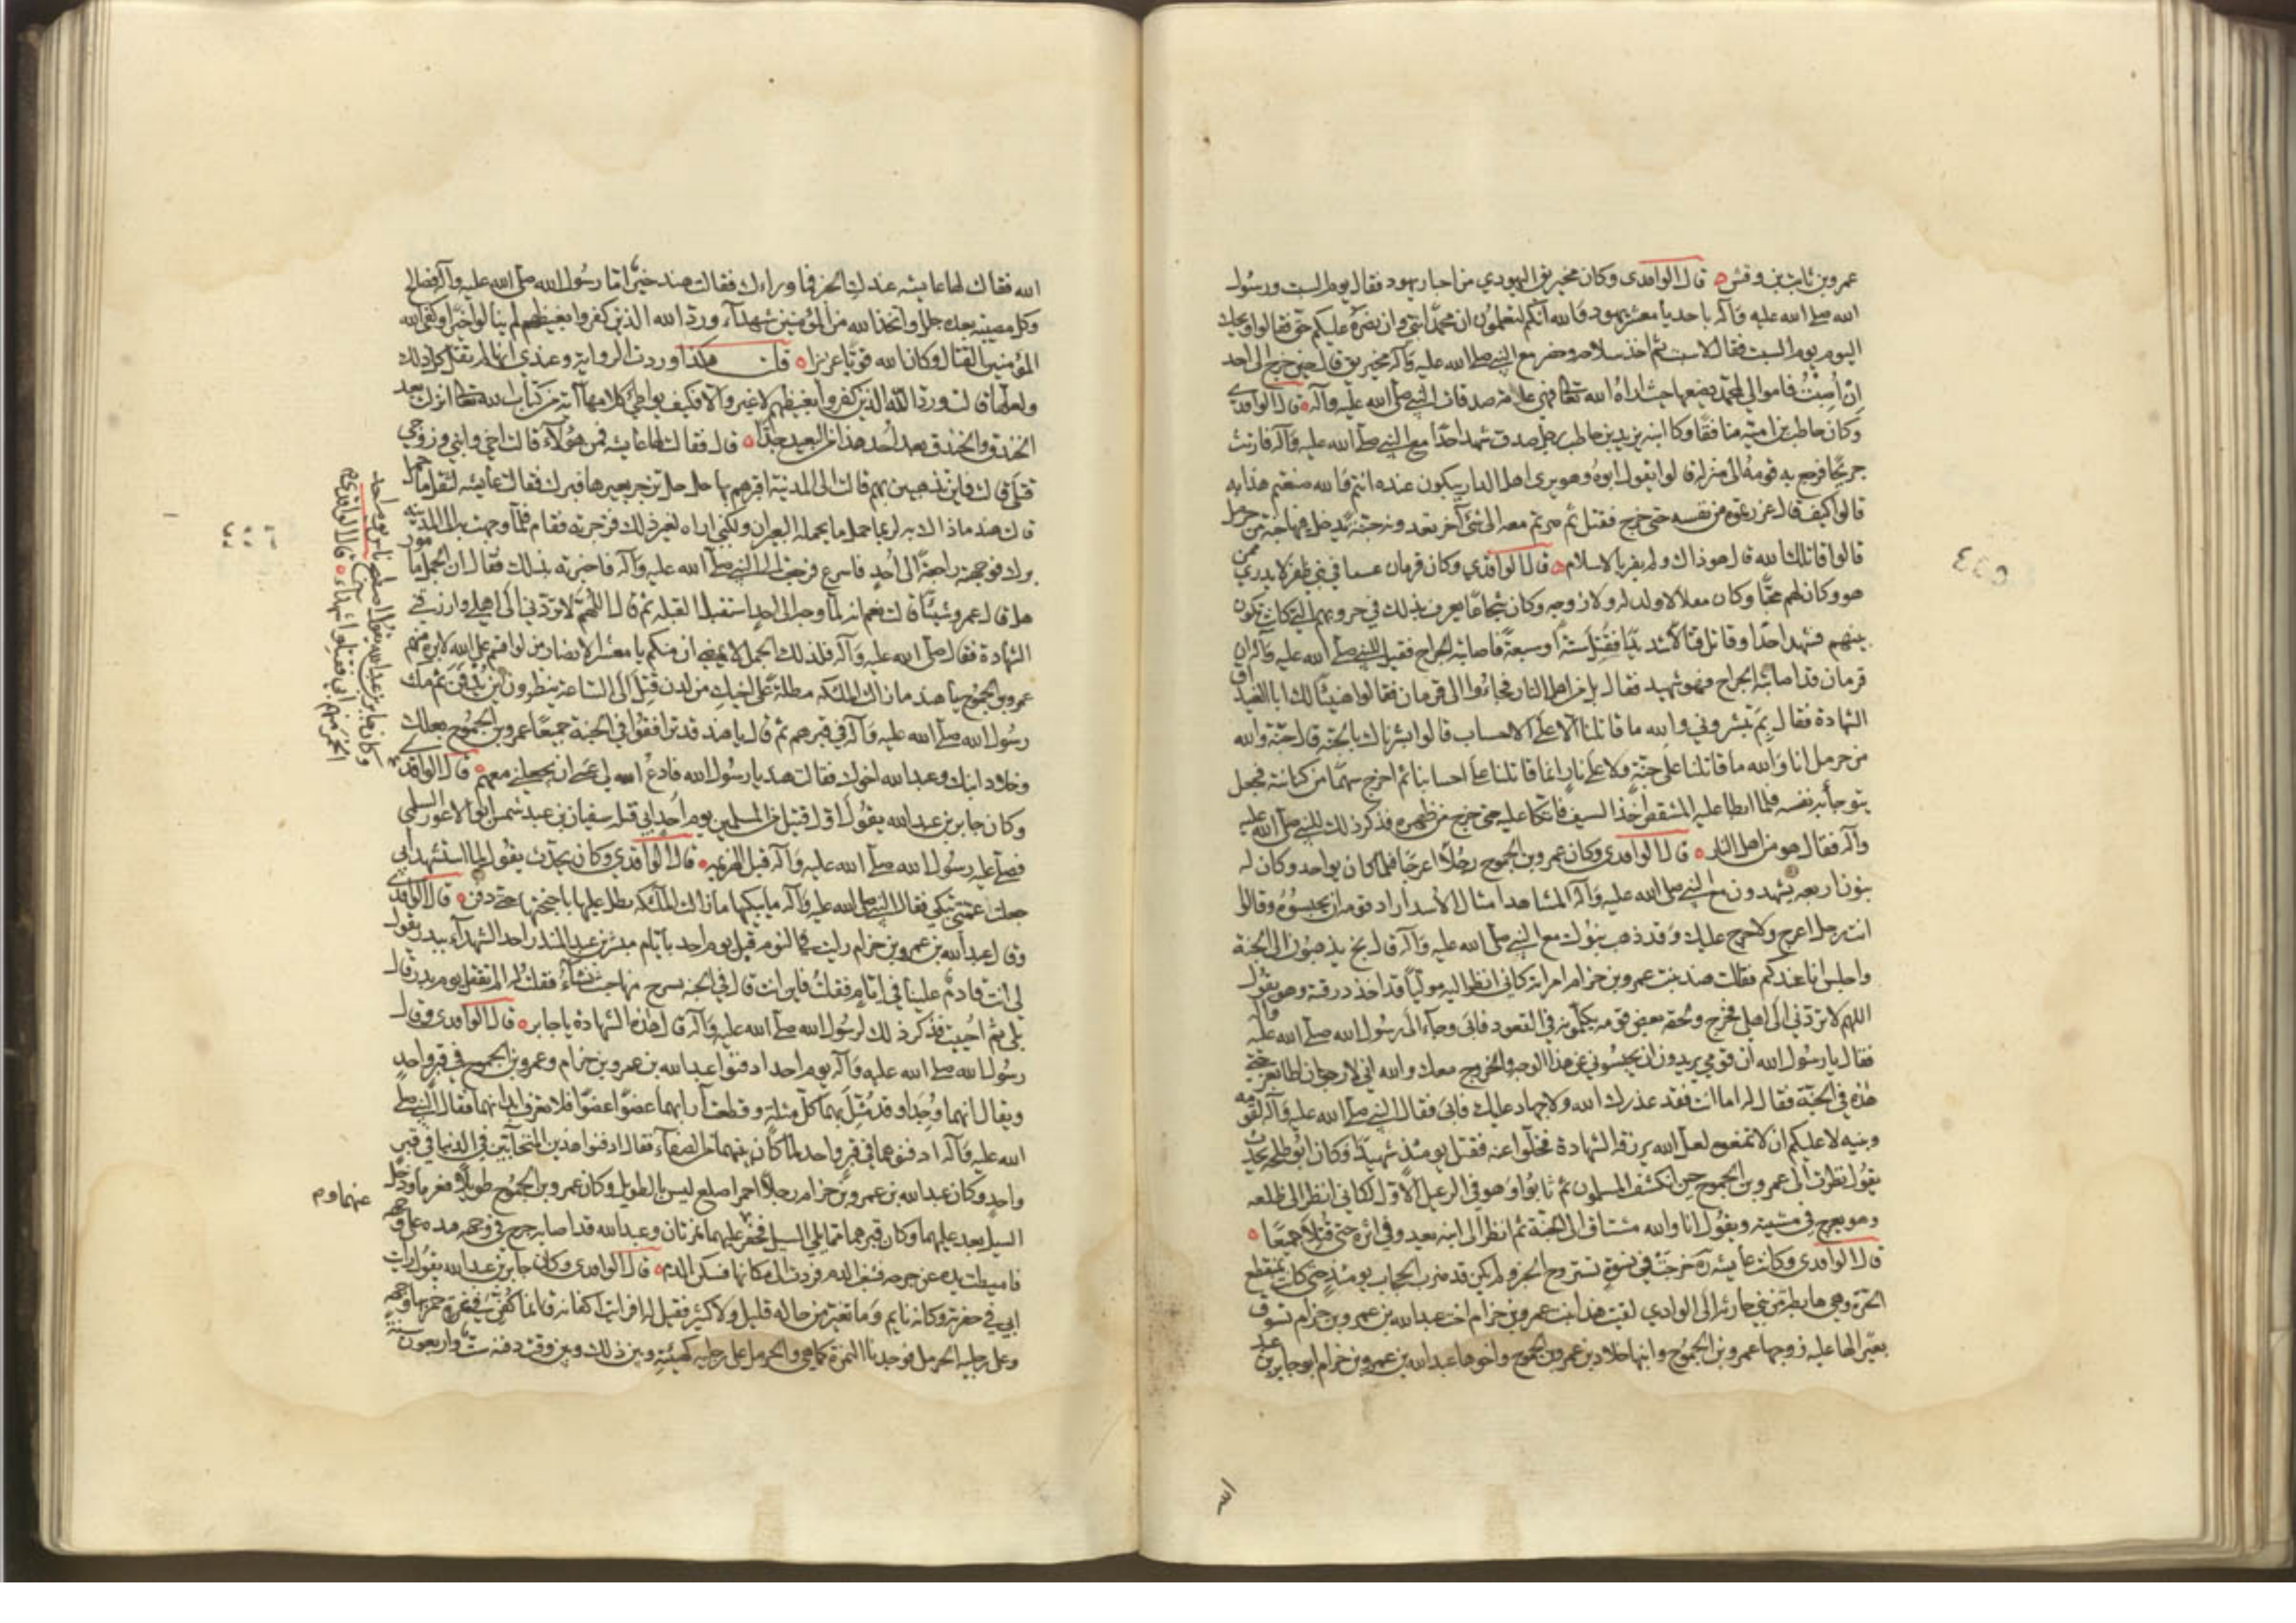 عمرو بن ثابت بن وقش ه قال الواقدي وكان مخيريق اليهودي من احبار يهود فقال يوم السبت ورسول
الله صلى الله عليه وآله باحد يا معشر يهود والله انكم لتعلمون ان محمدا نبي وان نصره عليكم حق فقالوا ويحك
اليوم يوم السبت فقال لا سبت ثم اخذ سلاحه وحضر مع النبي صلى الله عليه وآله مخيريق قال حين خرج الى احد
ان اصبت فاموالي لمحمد يضعها حيث اراه الله تعالى فهي عامة صدقات النبي صلى الله عليه وآله ه قال الواقدي
وكان حاطب بن امية منافقا وكان ابنه يزيد بن حاطب رجل صدق شهد احدا مع النبي صلى الله عليه وآله فارتث
جريحا فرجع به قومه الى منزله قالوا يقول ابوه وهو يرى اهل الدار يبكون عنده انتم والله صنعتم هذا به
قالوا كيف قال غررتموه من نفسه حتى خرج فقتل ثم صرتم معه الى شئ آخر تعدونه جنة يدخل فيها جنة من حرمل
قالوا قاتلك الله قال هو ذاك ولم يقر بالاسلام ه قال الواقدي وكان قزمان عسيفا في بني ظفر لا يدرى ممن
هو وكان لهم محبا وكان مقلا لا ولد له ولا زوجه وكان شجاعا يعرف بذلك في حروبهم التي كانت تكون
بينهم فشهد احدا وقاتل قتالا شديدا فقتل ستة او سبعة فاصابته الجراح فقيل للنبي صلى الله عليه وآله ان
قزمان قد اصابته الجراح فهو شهيد فقال بل من اهل النار فجاءوا الى قزمان فقالوا هنيئا لك ابا الغيداق
الشهادة فقال بم تبشروني والله ما قاتلنا الا على الاحساب قالوا بشرناك بالجنة قال جنة والله
من حرمل انا والله ما قاتلنا على جنة ولا على نار انما قاتلنا على احسابنا ثم اخرج سهما من كنانته فجعل
يتوجأ به نفسه فلما ابطا عليه المشقص اخذ السيف فاتكا عليه حتى خرج من ظهره فذكر ذلك للنبي صلى الله عليه
وآله فقال هو من اهل النار ه قال الواقدي وكان عمرو بن الجموح رجلا اعرج فلما كان يوم احد وكان له
بنون اربعه يشهدون مع النبي صلى الله عليه وآله المشاهد امثال الأسد اراد قومه ان يحبسوه وقالوا
انت رجل اعرج ولا حرج عليك وقد ذهب بنوك مع النبي صلى الله عليه وآله قال بخ يذهبون الى الجنة
واجلس انا عندكم فقالت هند بنت عمرو بن حزام امراته كاني انظر اليه موليا قد اخذ درقته وهو يقول
اللهم لا تردني الى اهلي فخرج ولحقه بعض قومه يكلمونه في القعود فابى وجاء الى رسول الله صلى الله عليه وآله
فقال يا رسول الله ان قومي يريدون ان يحبسوني عن هذا الوجه والخروج معك والله اني لارجو ان اطا بعرجتي
هذه في الجنة فقال له اما انت فقد عذرك الله ولا جهاد عليك فابى فقال النبي صلى الله عليه وآله لقومه
وبنيه لا عليكم ان لا تمنعوه لعل الله يرزقه الشهادة فخلوا عنه فقتل يومئذ شهيدا وكان ابو طلحه يحدث
يقول نظرت الى عمرو بن الجموح حين انكشف المسلمون ثم ثابوا وهو في الرعيل الأول لكاني انظر الى ظلعه
وهو يعرج في مشيته ويقول انا والله مشتاق الى الجنة ثم انظر الى ابنه يعدو في اثره حتى قتلا جميعا ه
قال الواقدي وكانت عايشه ره خرجت في نسوة تستروح الخبر ولم يكن قد ضرب الحجاب يومئذ حتى كانت بمنقطع
الحرة وهي هابطة من بني حارثه الى الوادي لقيت هند بنت عمرو بن حزام اخت عبدالله بن عمرو بن حزام تسوق
بعيرا لها عليه زوجها عمرو بن الجموح وابنها خلاد بن عمرو بن الجموح واخوها عبدالله بن عمرو بن حزام ابو جابر بن عبد
الله
٤٤٥
الله فقالت لها عايشه عندك الخبر فما وراءك فقالت هند خيرا اما رسول الله صلى الله عليه وآله فصالح
وكل مصيبة بعده جلل واتخذ الله من المؤمنين شهدآء ورد الله الذين كفروا بغيظهم لم ينالوا خيرا وكفى الله
المؤمنين القتال وكان الله قويا عزيزا ه قلت هكذا وردت الرواية وعندي انها لم تقل كل ذلك
ولعلها قالت ورد الله الذين كفروا بغيظهم لا غير والا فكيف يواطئ كلامها آية من كتاب الله تعالى انزلت بعد
الخندق والخندق بعد احد هذا من البعيد جدا ه قال فقالت لها عايشه فمن هؤلآء قالت اخي وابني وزوجي
قتلى قالت فاين تذهبين بهم قالت الى المدينة اقبرهم بها حل حل تزجر بعيرها فبرك فقالت عايشه لثقل ما حمل
قالت هند ماذاك به لربما حمل ما يحمله البعيران ولكني اراه لغير ذلك فزجرته فقام فلما وجهت به الى المدينه
برك فوجهته راجعة الى احد فاسرع فرجعت الى النبي صلى الله عليه وآله فاخبرته بذلك فقال ان الجمل مامور
هل قال عمرو شيئا قالت نعم انه لما وجه الى احد استقبل القبله ثم قال اللهم لا تردني الى اهلي وارزقني
الشهادة فقال صلى الله عليه وآله فلذلك الجمل لا يمضي ان منكم يا معشر الانصار من لو اقسم على الله لابره منهم
عمرو بن الجموح يا هند ما زالت الملئكه مظلة على اخيك من لدن قتل الى الساعة ينظرون اين يدفن ثم مكث
رسول الله صلى الله عليه وآله في قبرهم ثم قال يا هند قد ترافقوا في الجنة جميعا عمرو بن الجموح بعلك
وخلاد ابنك وعبدالله اخوك فقالت هند يا رسول الله فادع الله لي عسى ان يجعلني معهم ه قال الواقدي
وكان جابر بن عبدالله يقول اول قتيل من المسلمين يوم احد ابي قتله سفيان بن عبد شمس ابو الاعور السلمي
فصلى عليه رسول الله صلى الله عليه وآله قبل الهزيمه ه قال الواقدي وكان يحدث يقول لما استشهد ابي
جعلت عمتي تبكي فقال النبي صلى الله عليه وآله ما يبكيها ما زالت الملئكه تظل عليها باجنحتها حتى دفن ه قال الواقدي
وقال عبدالله بن عمرو بن حزام رايت في النوم قبل يوم احد بايام مبشر بن عبد المنذر احد الشهدآء ببدر يقول
لي انت قادم علينا في ايام فقلت فاين انت قال في الجنه نسرح منها حيث نشآء فقلت له الم تقتل يوم بدر قال
بلى ثم احييت فذكر ذلك لرسول الله صلى الله عليه وآله قال هذه الشهادة يا جابر ه قال الواقدي وقال
رسول الله صلى الله عليه وآله يوم احد ادفنوا عبدالله بن عمرو بن حزام وعمرو بن الجموح في قبر واحد
ويقال انهما وجدا وقد مثل بهما كل مثلة وقطعت آرابهما عضوا عضوا فلا تعرف ابدانهما فقال النبي صلى
الله عليه وآله ادفنوهما في قبر واحد لما كان بينهما من الصفآء فقال ادفنوا هذين المتحابين في الدنيا في قبر
واحد وكان عبدالله بن عمرو بن حزام رجلا احمر اصلع ليس بالطويل وكان عمرو بن الجموح طويلا فعرفا ودخل
السيل بعد عليهما وكان قبرهما مما يلي السيل فحفر عليهما نمرتان وعبدالله قد اصابه جرح في وجهه يده على وجهه
فاميطت يده عن جرحه فثعب الدم فردت الى مكانها فسكن الدم ه قال الواقدي وكان جابر بن عبدالله يقول رايت
ابي في حفرته وكانه نايم وما تغير من حاله قليل ولا كثير فقيل له افرايت اكفانه قال انما كفن في نمرة خمر بها وجهه
وعلى رجليه الحرمل فوجدنا النمرة كما هي والحرمل على رجليه كهيئته وبين ذلك وبين وقت دفنه ست واربعون سنه
وكان جابر بن عبدالله يقول اصطبح ناس يوم احد
الخمر منهم ابي فقتلوا شهداء ه قال الواقدي
عنهما وم
٤٤٦